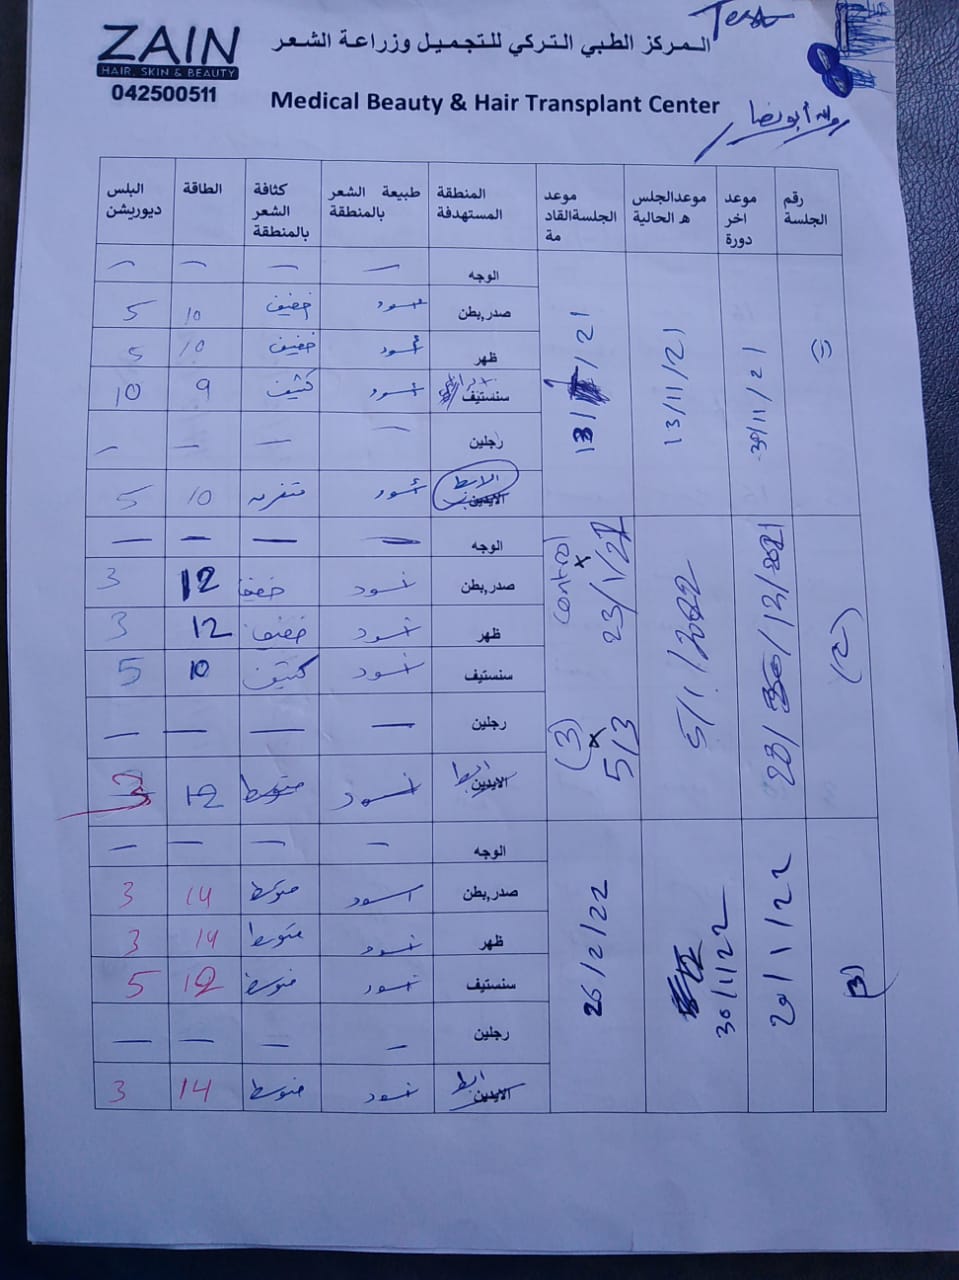 Test
ZAIN
HAIR, SKIN & BEAUTY
042500511
المركز الطبي التركي للتجميل وزراعة الشعر
Medical Beauty & Hair Transplant Center
8
رقم الجلسة | موعد اخر دورة | موعدالجلس ه الحالية | موعد الجلسةالقاد مة | المنطقة المستهدفة | طبيعة الشعر بالمنطقة | كثافة الشعر بالمنطقة | الطاقة | البلس ديوريشن
30/11/21 | 13/11/21
الوجه | — | — | — | —
صدر,بطن | اسود | خفيف | 10 | 5
ظهر | أسود | خفيف | 10 | 5
سنستيف | اسود | كثيف | 9 | 10
رجلين | — | — | — | —
الابط الايدين | أسود | 10 | 5
(2) | 28/12/2021 | 5/1/2022 | control 23/1/22 | (3) 5/3
الوجه | — | — | — | —
صدر,بطن | اسود | خفيف | 12 | 3
ظهر | اسود | خفيف | 12 | 3
سنستيف | اسود | كثيف | 10 | 5
رجلين | — | — | — | —
الايدين ابط | اسود | متوسط | 12 | 3
(3) | 20/1/22 | 30/1/22 | 26/2/22
الوجه | — | — | — | —
صدر,بطن | اسود | متوسط | 14 | 3
ظهر | اسود | متوسط | 14 | 3
سنستيف | اسود | متوسط | 12 | 5
رجلين | — | — | — | —
الايدين ابط | اسود | متوسط | 14 | 3